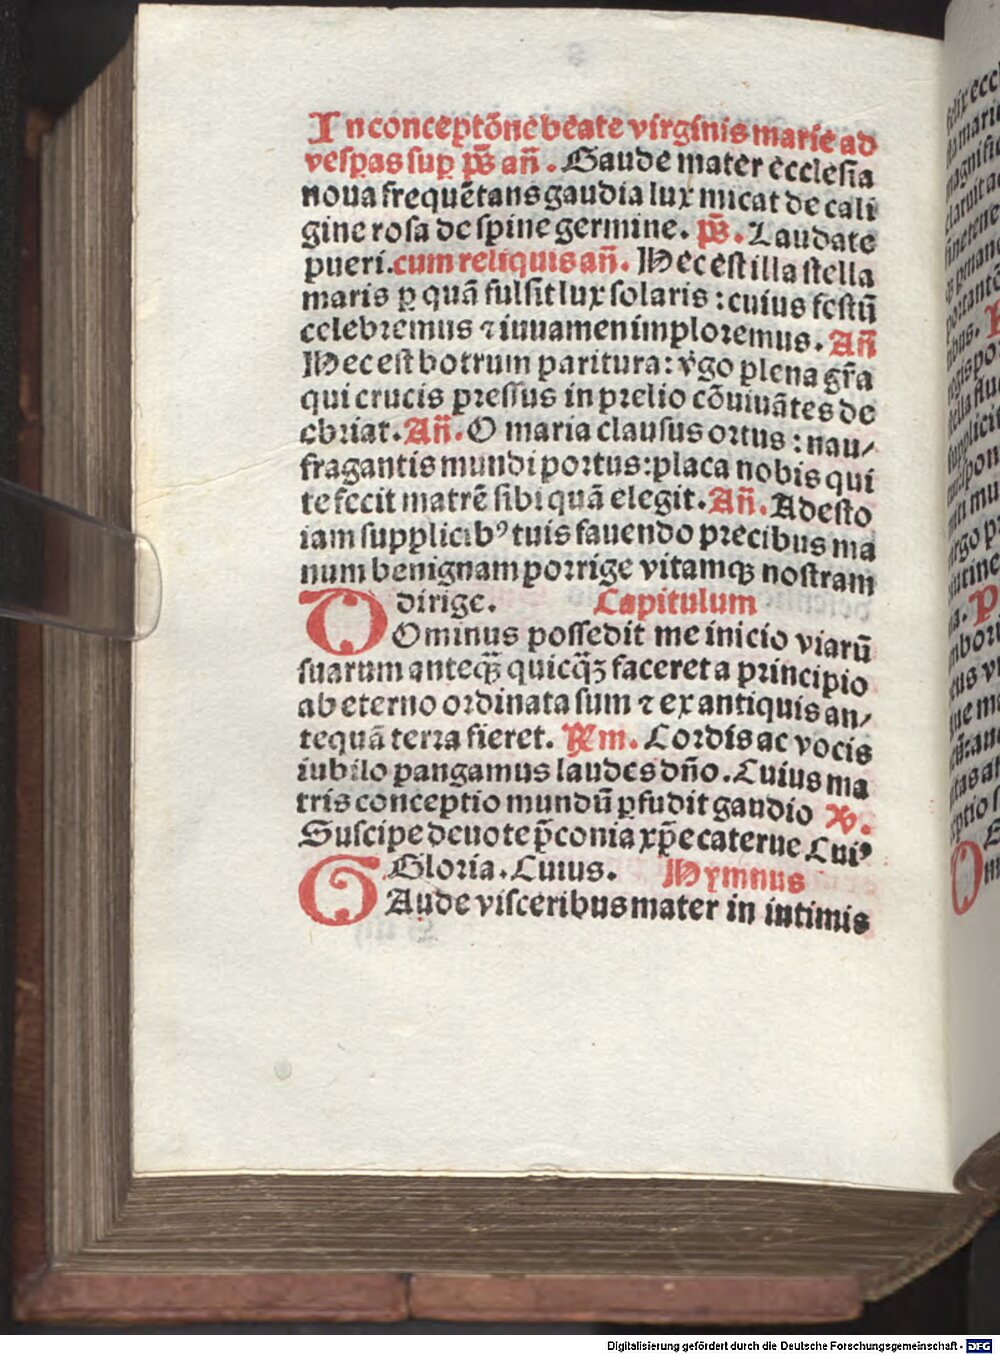 In conceptõne beate virginis marie ad
vesꝑas suꝑ p̄s añ. Gaude mater ecclesia
noua frequẽtans gaudia lux micat de cali
gine rosa de spine germine. p̄s. Laudate
pueri. cum reliquis añ. Hec est illa stella
maris ꝑ quã fulsit lux solaris : cuius festũ
celebremus ⁊ iuuamen imploremus. Añ
Hec est botrum paritura : v̾go plena gr̃a
qui crucis pressus in prelio cõuiuãtes de
ebriat. Añ. O maria clausus ortus : nau/
fragantis mundi portus : placa nobis qui
te fecit matrẽ sibi quã elegit. Añ. Adesto
iam supplicibꝰ tuis fauendo precibus ma
num benignam porrige vitamqꝫ nostram
dirige. Capitulum
DOminus possedit me inicio viarũ
suarum anteqꝫ̃ quicqꝫ̃ faceret a principio
ab eterno ordinata sum ⁊ ex antiquis an/
tequã terra fieret. Rm. Cordis ac vocis
iubilo pangamus laudes dño. Cuius ma
tris conceptio mundũ ꝓfudit gaudio ℣.
Suscipe deuote p̃conia xp̃e caterue Cuiꝰ
Gloria. Cuius. Hymnus
GAude visceribus mater in intimis
felix eccl
Digitalisierung gefördert durch die Deutsche Forschungsgemeinschaft - DFG